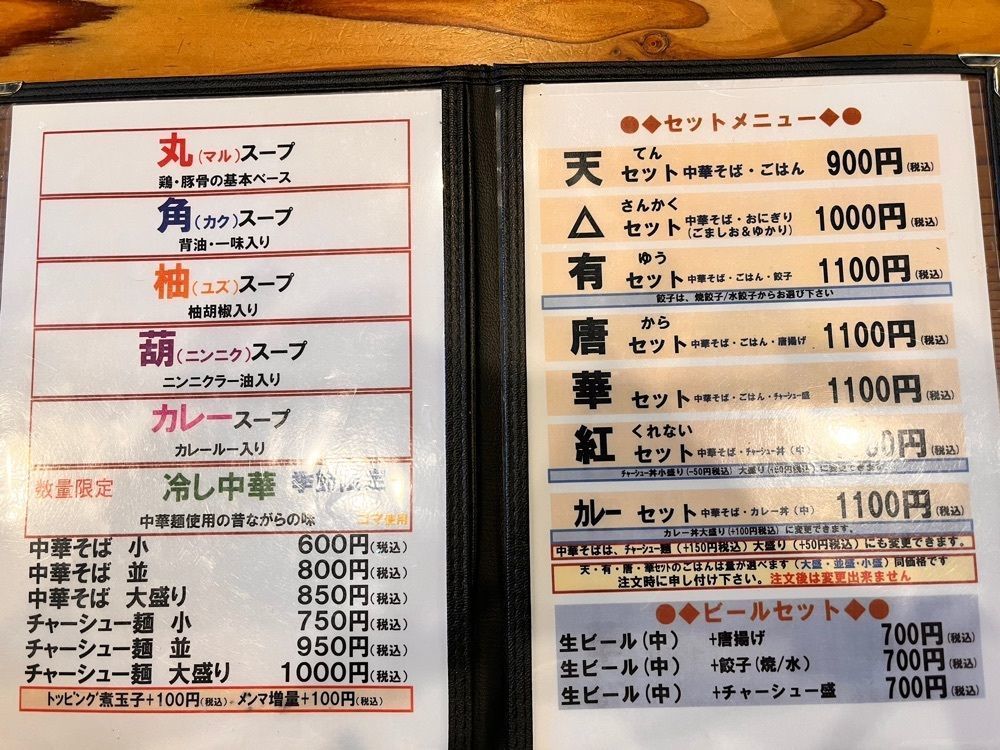 丸(マル)スープ
鶏・豚骨の基本ベース
角(カク)スープ
背油・一味入り
柚(ユズ)スープ
柚胡椒入り
葫(ニンニク)スープ
ニンニクラー油入り
カレースープ
カレールー入り
数量限定 冷し中華
中華麺使用の昔ながらの味 ゴマ使用
中華そば 小 600円(税込)
中華そば 並 800円(税込)
中華そば 大盛り 850円(税込)
チャーシュー麺 小 750円(税込)
チャーシュー麺 並 950円(税込)
チャーシュー麺 大盛り 1000円(税込)
トッピング煮玉子+100円(税込)・メンマ増量+100円(税込)
●◆セットメニュー◆●
てん
天 セット 中華そば・ごはん 900円(税込)
さんかく
△ セット 中華そば・おにぎり(ごましお&ゆかり) 1000円(税込)
ゆう
有 セット 中華そば・ごはん・餃子 1100円(税込)
餃子は、焼餃子/水餃子からお選び下さい
から
唐 セット 中華そば・ごはん・唐揚げ 1100円(税込)
華 セット 中華そば・ごはん・チャーシュー盛 1100円(税込)
くれない
紅 セット 中華そば・チャーシュー丼(中) 円(税込)
チャーシュー丼小盛り(-50円税込) 大盛り(+50円税込)に変更できます。
カレー セット 中華そば・カレー丼(中) 1100円(税込)
カレー丼大盛り(+100円税込)に変更できます。
中華そばは、チャーシュー麺(+150円税込)大盛り(+50円税込)にも変更できます。
天・有・唐・華セットのごはんは量が選べます(大盛・並盛・小盛)同価格です
注文時に申し付け下さい。注文後は変更出来ません
●◆ビールセット◆●
生ビール(中) +唐揚げ 700円(税込)
生ビール(中) +餃子(焼/水) 700円(税込)
生ビール(中) +チャーシュー盛 700円(税込)